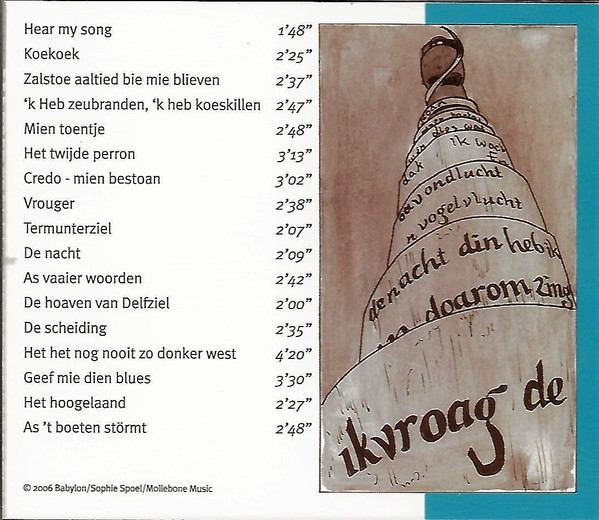 Hear my song 1'48"
Koekoek 2'25"
Zalstoe aaltied bie mie blieven 2'37"
'k Heb zeubranden, 'k heb koeskillen 2'47"
Mien toentje 2'48"
Het twijde perron 3'13"
Credo - mien bestoan 3'02"
Vrouger 2'38"
Termunterziel 2'07"
De nacht 2'09"
As vaaier woorden 2'42"
De hoaven van Delfziel 2'00"
De scheiding 2'35"
Het het nog nooit zo donker west 4'20"
Geef mie dien blues 3'30"
Het hoogelaand 2'27"
As 't boeten störmt 2'48"
© 2006 Babylon/Sophie Spoel/Mollebone Music
dat ik wach
avondlucht
n vogelvlucht
de nacht din heb ik
doarom zing
ik vroag de